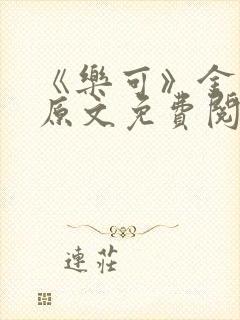 《樂可》全
原文免費閱
連莊